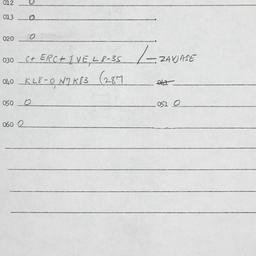 012 0
013 0
020 0
030 C+ ERC+IVE, L8-35 /- ZAVJASE
040 KL8-0, N7K83 (287
050 0 051 0
060 0